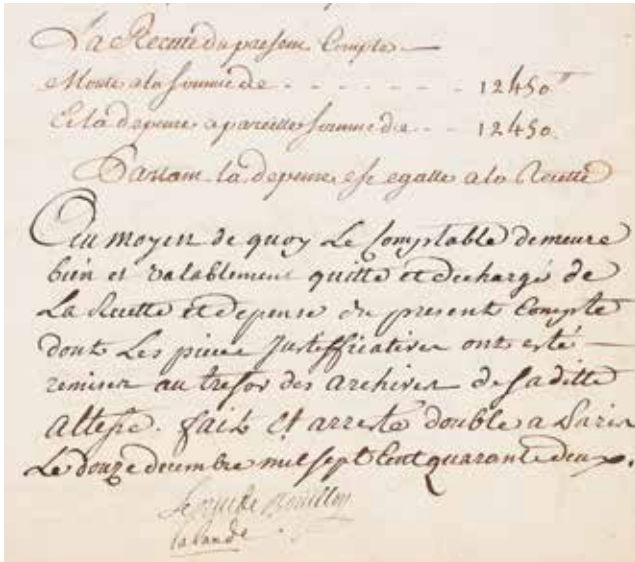 La Recette du present Compte
Monte a la somme de - - - - - - - 12450 ᵗᵗ
Et la depense a pareille somme de - - 12450.
Partant la depense est egalle a la Recette
Au moyen de quoy Le Comptable demeure
bien et valablement quitte et dechargé de
La Recette et depense du present Compte
dont Les pieces Justifficatives ont esté
remises au tresor des archives de sa ditte
altesse. fait et arresté double a Paris
Le douze decembre mil sept Cent quarante deux.
Le duc de Bouillon
lalande